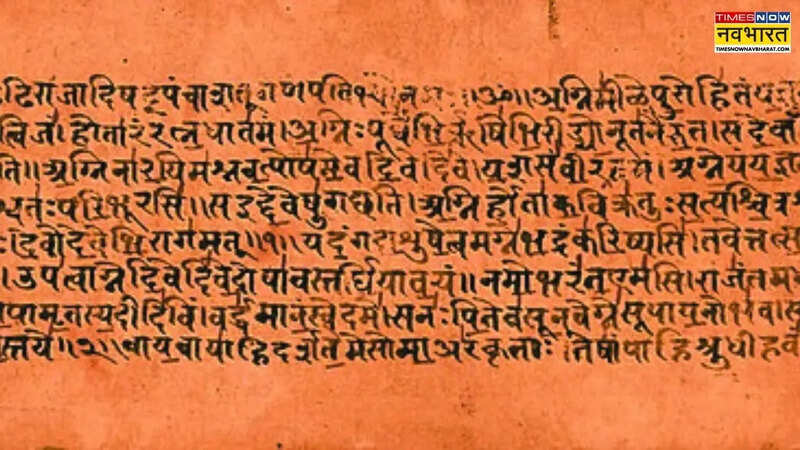 TIMES NOW
नवभारत
TIMESNOWNAVBHARAT.COM
अग्निमीळेपुरोहितं
त्विजं।होतारंरत्नधातमं।अग्निःपूर्वेभिर्ऋषिभिरीड्योनूतनैरुत।सदेवाँ
ति॥अग्निनारयिमश्नवत्पोषमेवदिवेदिवे।यशसंवीरवत्तमं।
श्वतःपरिभूरसि॥सइद्देवेषुगच्छति।अग्निर्होताकविक्रतुःसत्यश्चित्रश्र
।देवोदेवेभिरागमत्॥१॥यदंगदाशुषेत्वमग्नेभद्रंकरिष्यसि।तवेत्तत्स
।उपत्वाग्नेदिवेदिवेदोषावस्तर्धियावयं॥नमोभरंतएमसि।राजंतम
पामृतस्यदीदिविं।वर्द्धमानंस्वेदमे।सनःपितेवसूनवेग्नेसूपायनोभव।स
स्तये॥२॥वायवायाहिदर्शतेमेसोमाअरंकृताः।तेषांपाहिश्रुधीहवं